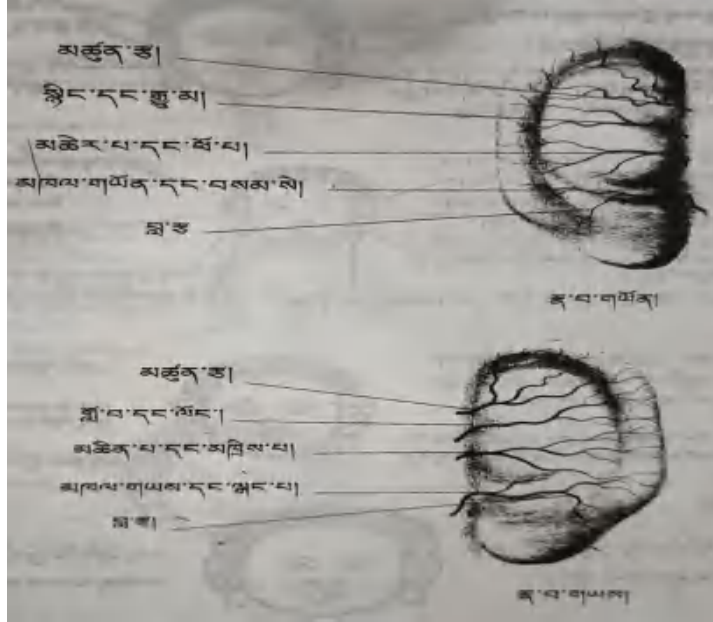 མཚུན་རྩ།
སྙིང་དང་རྒྱུ་མ།
མཆེར་པ་དང་ཕོ་བ།
མཁལ་གཡོན་དང་བསམ་སེ།
བླ་རྩ
རྣ་བ་གཡོན།
མཚུན་རྩ།
གློ་བ་དང་ལོང་།
མཆིན་པ་དང་མཁྲིས་པ།
མཁལ་གཡས་དང་ལྒང་པ།
བླ་རྩ།
རྣ་བ་གཡས།